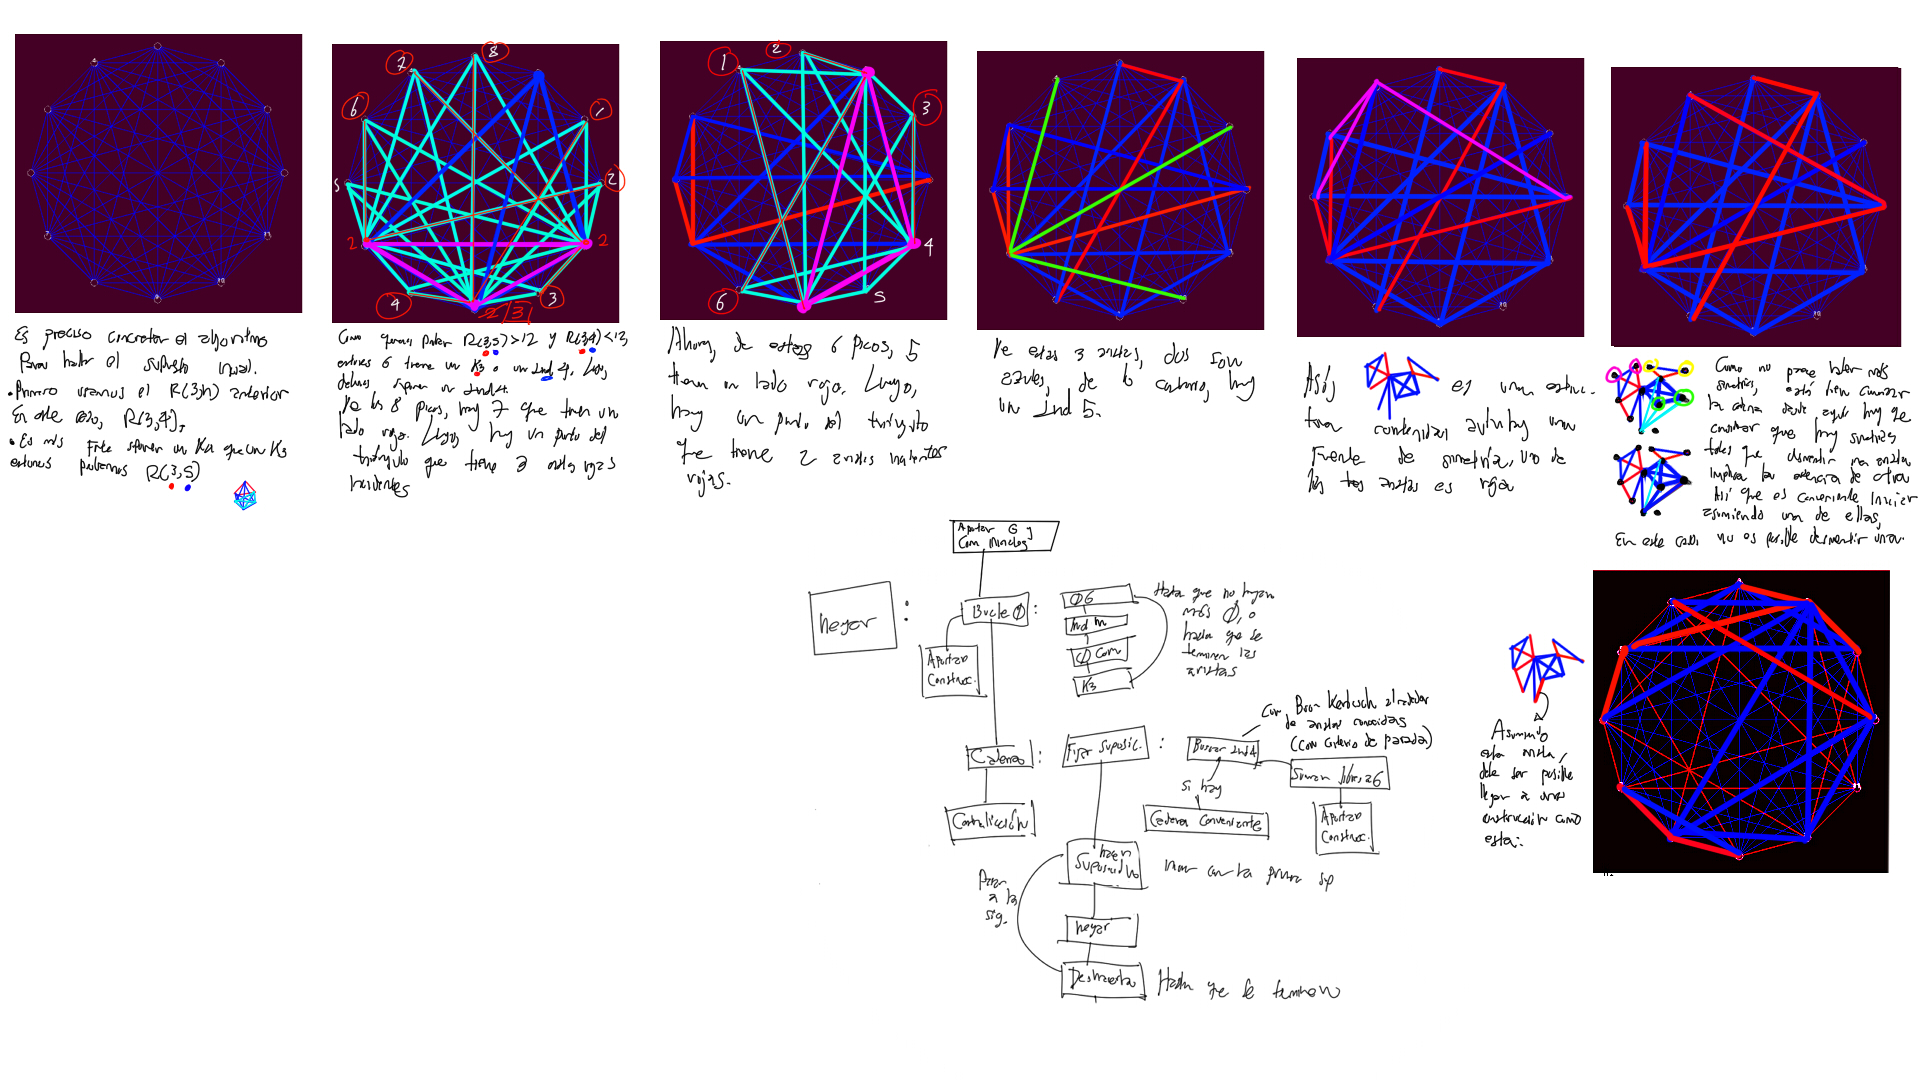 Es preciso concretar el algoritmo
Para hallar el supuesto inicial.
• Primero usamos el R(3,n) anterior
En este caso, R(3,4).
• Es más
estonces R(3,5)
7
8
6
1
5
2
2
2
4
3
Como R(3,5)>12 y R(3,4)<12,
entonces 6 tiene un K3 o un Ind 4. Luego,
debemos un Ind 4.
De los 8 picos, hay 7 que tienen un
lado rojo. Luego, hay un punto del
triángulo que tiene 3 aristas rojas
incidentes
1
2
3
4
6
5
Ahora, de estos 6 picos, 5
tienen un lado rojo. Luego,
hay un punto del triángulo
que tiene 2 aristas incidentes
rojas.
De estas 3 aristas, dos son
azules, de lo contrario, hay
un Ind 5.
Así, es una estruc-
tura contenida, hay una
Fuente de simetría, uno de
las tres aristas es roja
Como no puede haber más
simetrías, está bien comenzar
la cadena desde aquí hay que
considerar que hay simetrías
tales que desmentir una arista
implica la de otra
Así que es conveniente iniciar
asumiendo una de ellas,
En este caso no es posible desmentir una.
Aportar G y
Com
negar
:
Bucle ∅
:
Aportar
Construc.
∅ G
Ind n
∅ Com
K3
Hasta que no hayan
más ∅, o
hasta que se
terminen las
aristas
Cadena
:
Contradicción
Fijar Suposic.
:
Buscar Ind 4
Con Bron Kerbosch alrededor
de aristas conocidas
(Con criterio de parada)
si hay
Cadena Conveniente
Suman libres a 6
Aportar
Construc.
hacer
Suposición
Pasar
a la
sig.
negar
Desmentir
Hasta que se terminen
Asumiendo
esta arista,
debe ser posible
llegar a una
construcción como
esta: